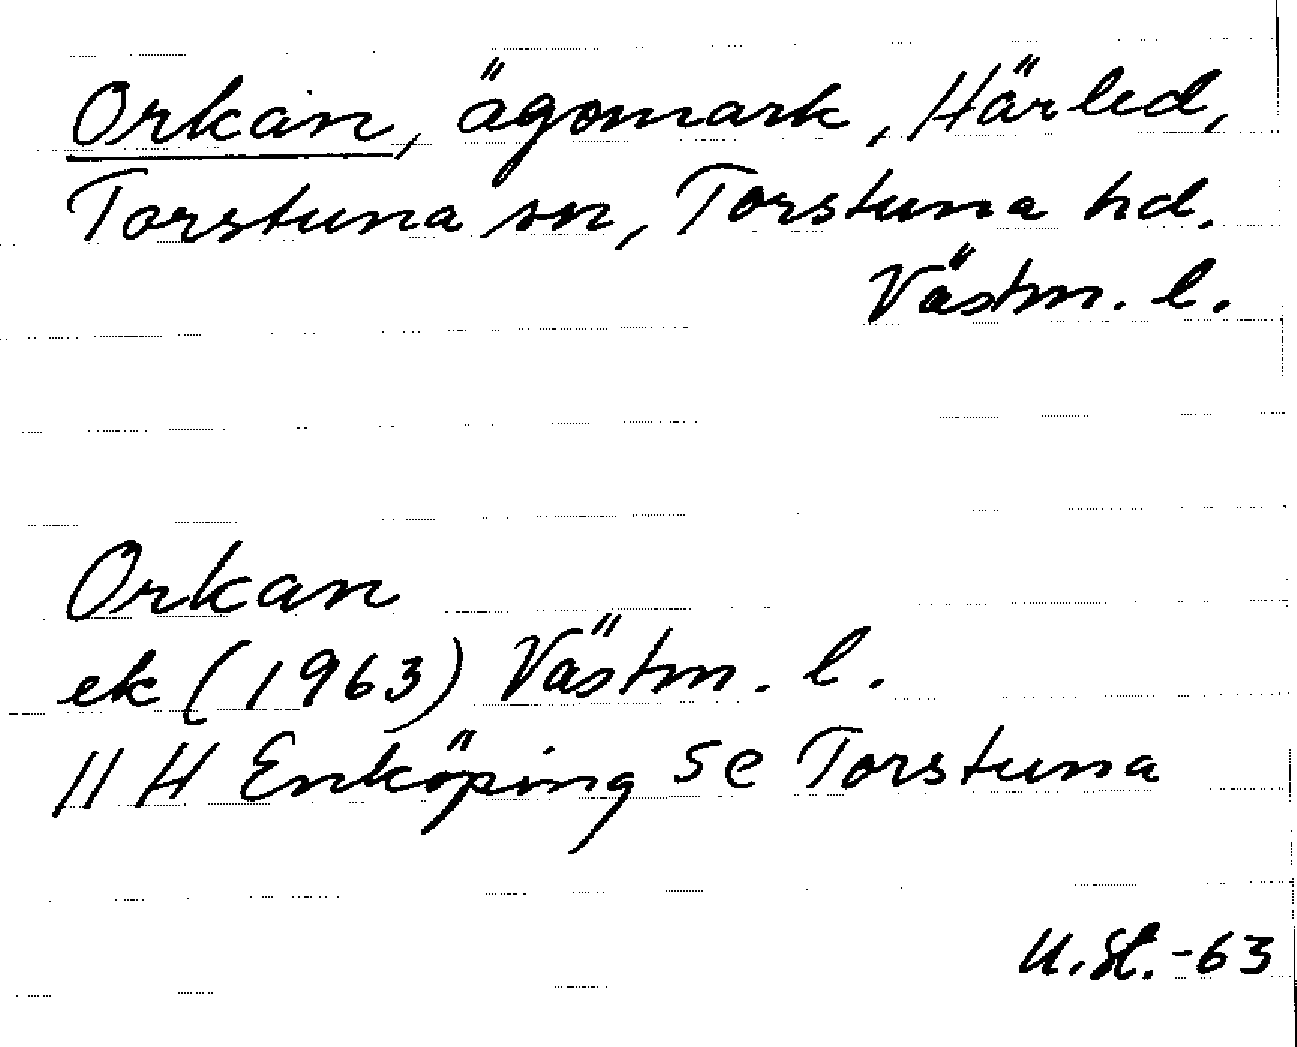 Orkan, ägomark, Härled,
Torstuna sn, Torstuna hd.
Västm. l.
Orkan
ek (1963) Västm. l.
11 H Enköping SC Torstuna
U.St.-63